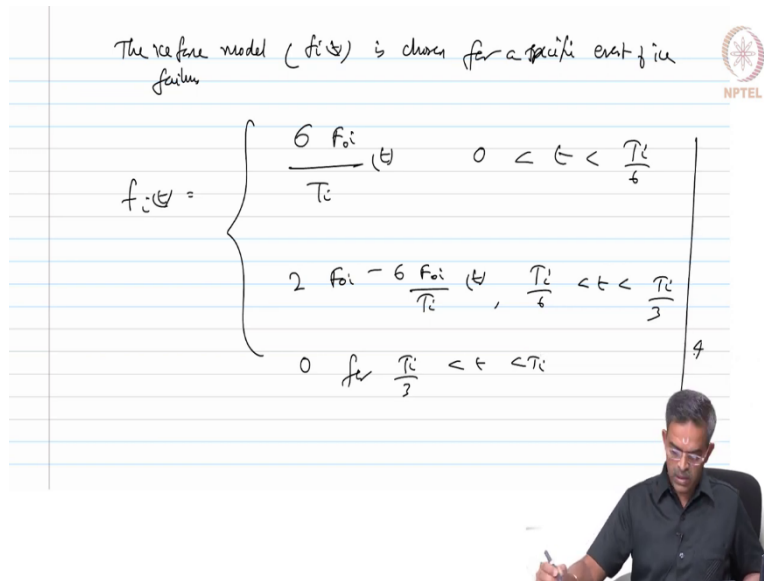 The ice force model (fi(t)) is chosen for a specific event of ice
failure
NPTEL
6 Foi / Ti (t) 0 < t < Ti/6
fi(t) =
2 Foi - 6 Foi / Ti (t), Ti/6 < t < Ti/3
0 for Ti/3 < t < Ti
4